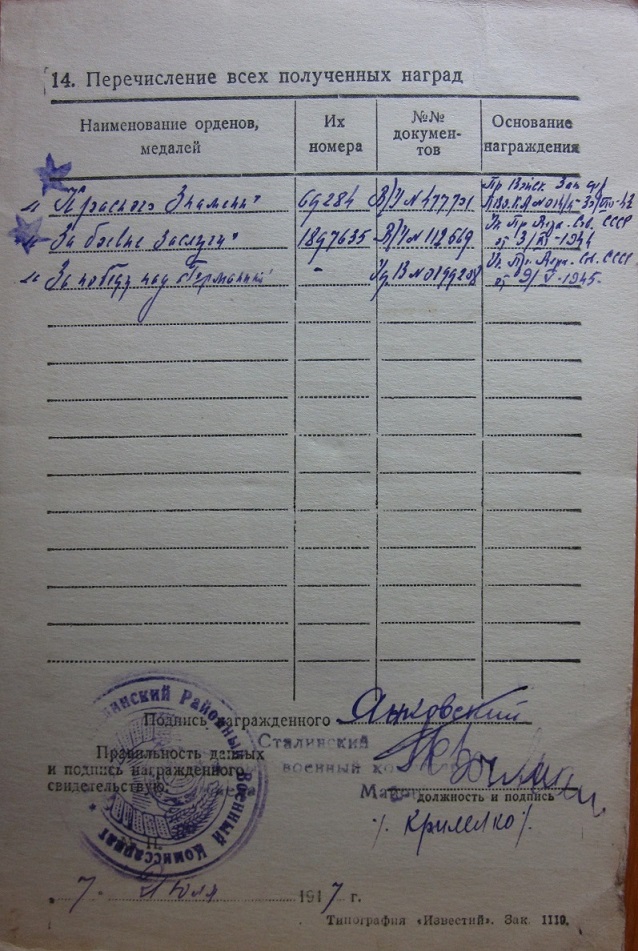 14. Перечисление всех полученных наград
Наименование орденов, медалей
Их номера
№№ докумен- тов
Основание награждения
"Красного Знамени"
69284
В/У N 477701
"За боевые заслуги"
1897635
В/У N 112669
Ук. Пр. Верх. Сов. СССР
от 3/XI-1944
"За победу над Германией"
-
Уд. В N 0199208
Ук. Пр. Верх. Сов. СССР
от 9/V-1945.
Подпись награжденного
Сталинский
Правильность данных
и подпись награжденного
военный
свидетельствую.
Майор
должность и подпись
Районный Военный Комиссариат
7 Июля 1947 г.
Типография «Известий». Зак. 1110.